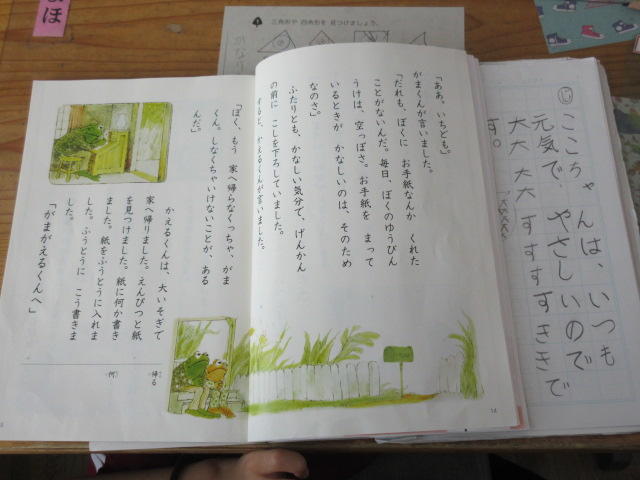 まほ
三角形や 四角形を 見つけましょう。
「ああ。いちども。」
がまくんが言いました。
「だれも、ぼくに お手紙なんか くれた
ことがないんだ。毎日、ぼくのゆうびん
うけは、空っぽさ。お手紙を まって
いるときが かなしいのは、そのため
なのさ。」
ふたりとも、かなしい気分で、げんかん
の前に こしを下ろしていました。
すると、かえるくんが言いました。
「ぼく、もう 家へ帰らなくっちゃ、がま
くん。しなくちゃいけないことが、ある
んだ。」
かえるくんは、大いそぎで
家へ帰りました。えんぴつと紙
を見つけました。紙に何か書き
ました。紙をふうとうに入れま
した。ふうとうに こう書きま
した。
「がまがえるくんへ」
帰る
何
14
ここちゃんは、いつも
元気で、やさしいので
大大大大すすすすききで
す。